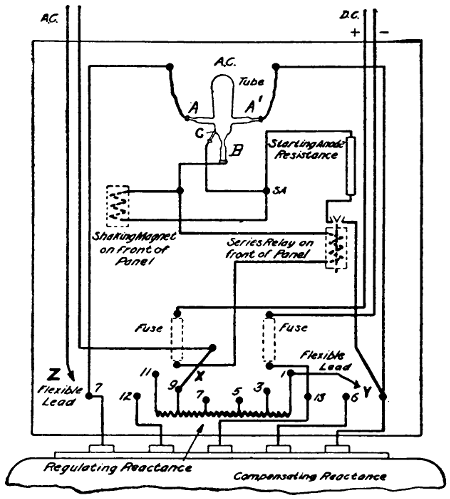 A.C.
D.C.
+ −
A.C.
Tube
A A'
G
B
Starting Anode
Resistance
SA
Shaking Magnet
on Front of
Panel
Series Relay on
front of Panel
Fuse
Fuse
X
Z
Flexible
Lead
Flexible
Lead
Y
7
12
11
9
7
5
3
1
13
6
Regulating Reactance
Compensating Reactance